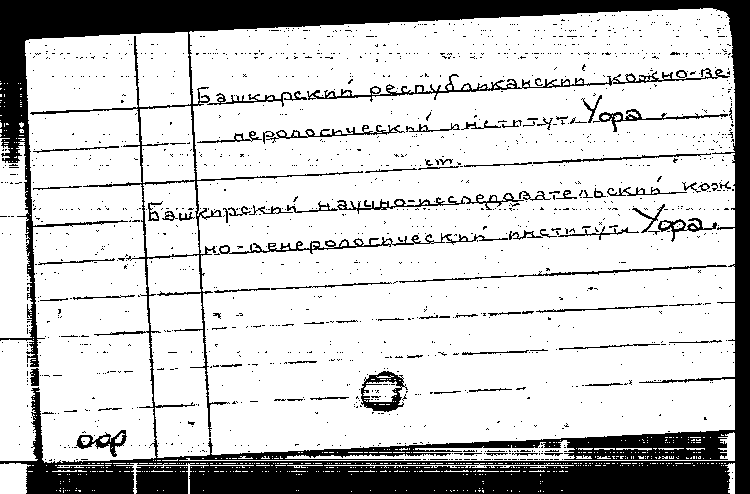 Башкирский республиканский кожно-ве-
нерологический институт, Уфа.
см.
Башкирский научно-исследовательский кож-
но-венерологический институт, Уфа.